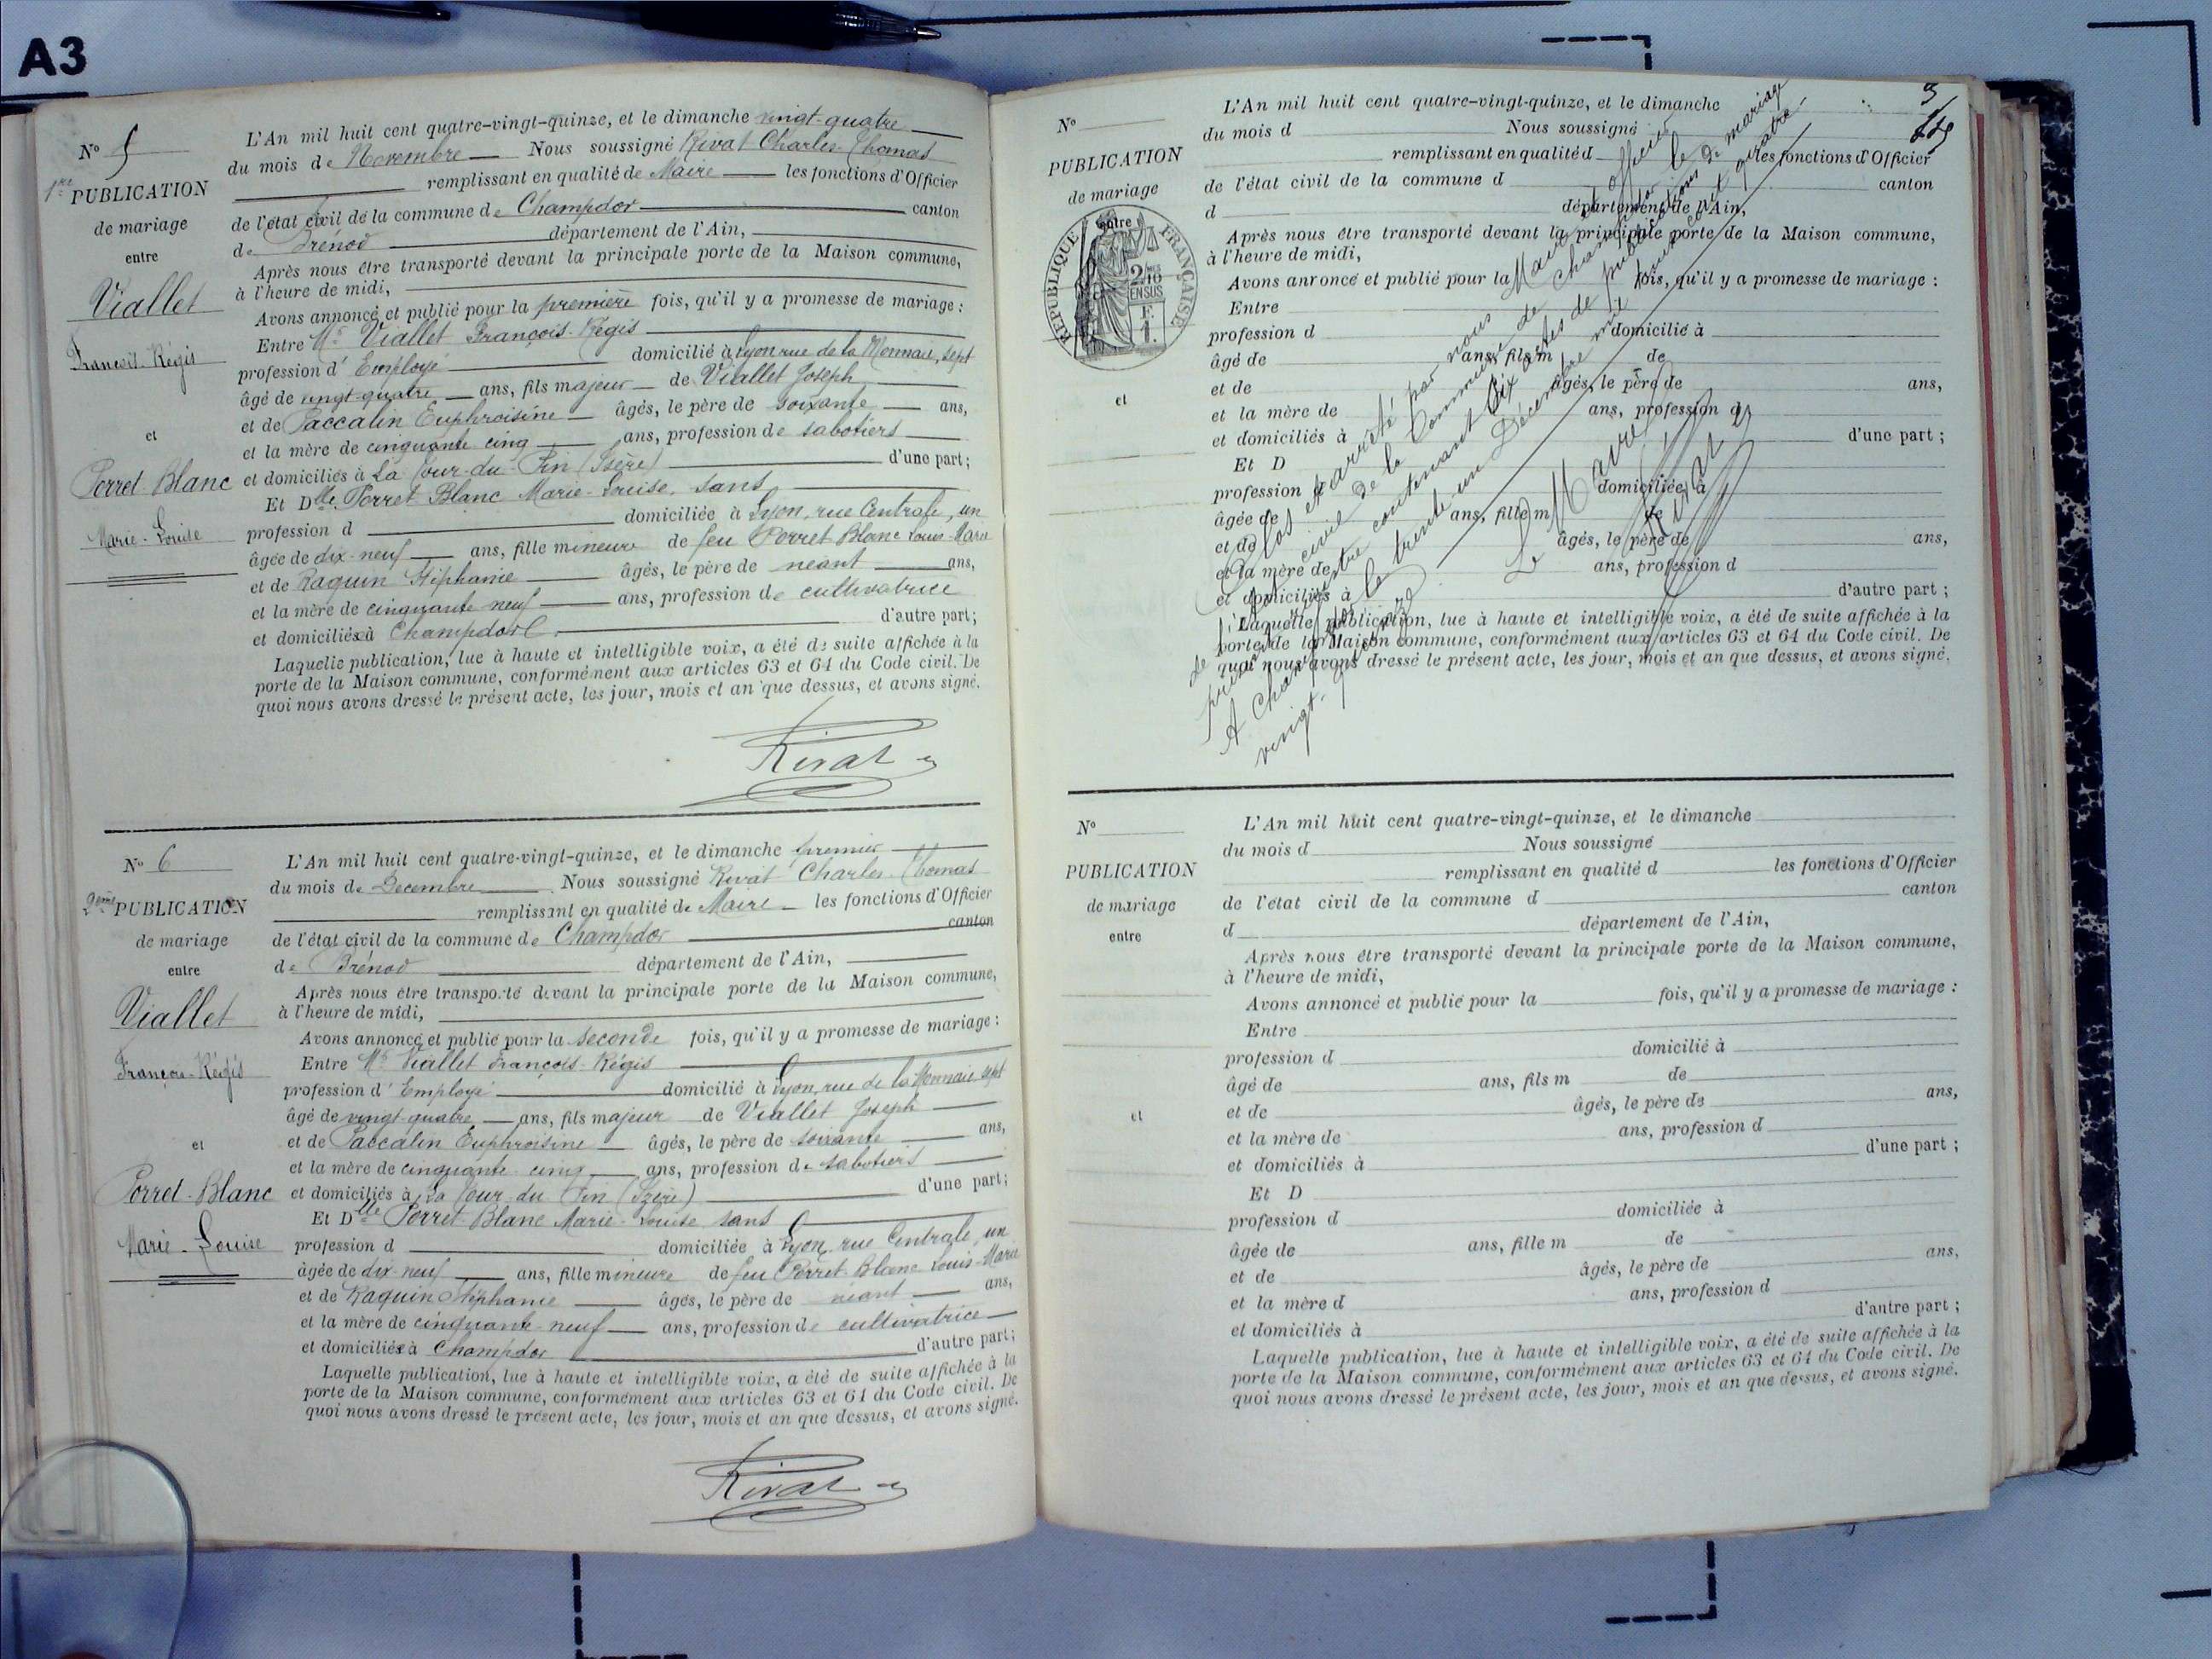 A3
N° 5
1re PUBLICATION
de mariage
entre
Viallet
François-Régis
et
Perret-Blanc
Marie-Louise
L'An mil huit cent quatre-vingt-quinze, et le dimanche vingt-quatre
du mois de Novembre Nous soussigné Rivat Charles Thomas
remplissant en qualité de Maire les fonctions d'Officier
de l'état civil de la commune de Champdor canton
de Brénod département de l'Ain,
Après nous être transporté devant la principale porte de la Maison commune,
à l'heure de midi,
Avons annoncé et publié pour la première fois, qu'il y a promesse de mariage :
Entre Mr Viallet François-Régis
profession d'Employé domicilié à Lyon rue de la Monnaie, sept
âgé de vingt-quatre ans, fils majeur de Viallet Joseph
et de Paccalin Euphroisine âgés, le père de soixante ans,
et la mère de cinquante cinq ans, profession de sabotiers
et domiciliés à La Tour-du-Pin (Isère) d'une part ;
Et Dlle Perret-Blanc Marie-Louise, sans
profession d domiciliée à Lyon, rue Centrale, un
âgée de dix-neuf ans, fille mineure de feu Perret-Blanc Louis-Marie
et de Raquin Stéphanie âgés, le père de néant ans,
et la mère de cinquante neuf ans, profession de cultivatrice
et domiciliés à Champdor d'autre part ;
Laquelle publication, lue à haute et intelligible voix, a été de suite affichée à la
porte de la Maison commune, conformément aux articles 63 et 64 du Code civil. De
quoi nous avons dressé le présent acte, les jour, mois et an que dessus, et avons signé.
Rivat
N° 6
2ème PUBLICATION
de mariage
entre
Viallet
François-Régis
et
Perret-Blanc
Marie-Louise
L'An mil huit cent quatre-vingt-quinze, et le dimanche premier
du mois de Décembre Nous soussigné Rivat Charles Thomas
remplissant en qualité de Maire les fonctions d'Officier
de l'état civil de la commune de Champdor canton
de Brénod département de l'Ain,
Après nous être transporté devant la principale porte de la Maison commune,
à l'heure de midi,
Avons annoncé et publié pour la seconde fois, qu'il y a promesse de mariage :
Entre Mr Viallet François-Régis
profession d'Employé domicilié à Lyon, rue de la Monnaie sept
âgé de vingt-quatre ans, fils majeur de Viallet Joseph
et de Paccalin Euphroisine âgés, le père de soixante ans,
et la mère de cinquante-cinq ans, profession de sabotiers
et domiciliés à La Tour-du-Pin (Isère) d'une part ;
Et Dlle Perret-Blanc Marie-Louise sans
profession d domiciliée à Lyon, rue Centrale, un
âgée de dix-neuf ans, fille mineure de feu Perret-Blanc Louis-Marie
et de Raquin Stéphanie âgés, le père de néant ans,
et la mère de cinquante-neuf ans, profession de cultivatrice
et domiciliés à Champdor d'autre part ;
Laquelle publication, lue à haute et intelligible voix, a été de suite affichée à la
porte de la Maison commune, conformément aux articles 63 et 64 du Code civil. De
quoi nous avons dressé le présent acte, les jour, mois et an que dessus, et avons signé.
Rivat
N°
PUBLICATION
de mariage
entre
RÉPUBLIQUE FRANÇAISE
et
L'An mil huit cent quatre-vingt-quinze, et le dimanche
du mois d Nous soussigné
remplissant en qualité d les fonctions d'Officier
de l'état civil de la commune d canton
d département de l'Ain,
Après nous être transporté devant la principale porte de la Maison commune,
à l'heure de midi,
Avons annoncé et publié pour la fois, qu'il y a promesse de mariage :
Entre
profession d domicilié à
âgé de ans, fils m de
et de âgés, le père de ans,
et la mère de ans, profession d
et domiciliés à d'une part ;
Et D
profession d domiciliée à
âgée de ans, fille m de
et de âgés, le père de ans,
et la mère de ans, profession d
et domiciliés à d'autre part ;
Laquelle publication, lue à haute et intelligible voix, a été de suite affichée à la
porte de la Maison commune, conformément aux articles 63 et 64 du Code civil. De
quoi nous avons dressé le présent acte, les jour, mois et an que dessus, et avons signé.
Clos et arrêté par nous Maire et officier
de l'état civil de la commune de Champdor le
présent registre contenant six actes de publications de mariage
A Champdor le trente un Décembre mil huit cent quatre
vingt-quinze
Le Maire
Rivat
N°
PUBLICATION
de mariage
entre
et
L'An mil huit cent quatre-vingt-quinze, et le dimanche
du mois d Nous soussigné
remplissant en qualité d les fonctions d'Officier
de l'état civil de la commune d canton
d département de l'Ain,
Après nous être transporté devant la principale porte de la Maison commune,
à l'heure de midi,
Avons annoncé et publié pour la fois, qu'il y a promesse de mariage :
Entre
profession d domicilié à
âgé de ans, fils m de
et de âgés, le père de ans,
et la mère de ans, profession d
et domiciliés à d'une part ;
Et D
profession d domiciliée à
âgée de ans, fille m de
et de âgés, le père de ans,
et la mère d ans, profession d
et domiciliés à d'autre part ;
Laquelle publication, lue à haute et intelligible voix, a été de suite affichée à la
porte de la Maison commune, conformément aux articles 63 et 64 du Code civil. De
quoi nous avons dressé le présent acte, les jour, mois et an que dessus, et avons signé.